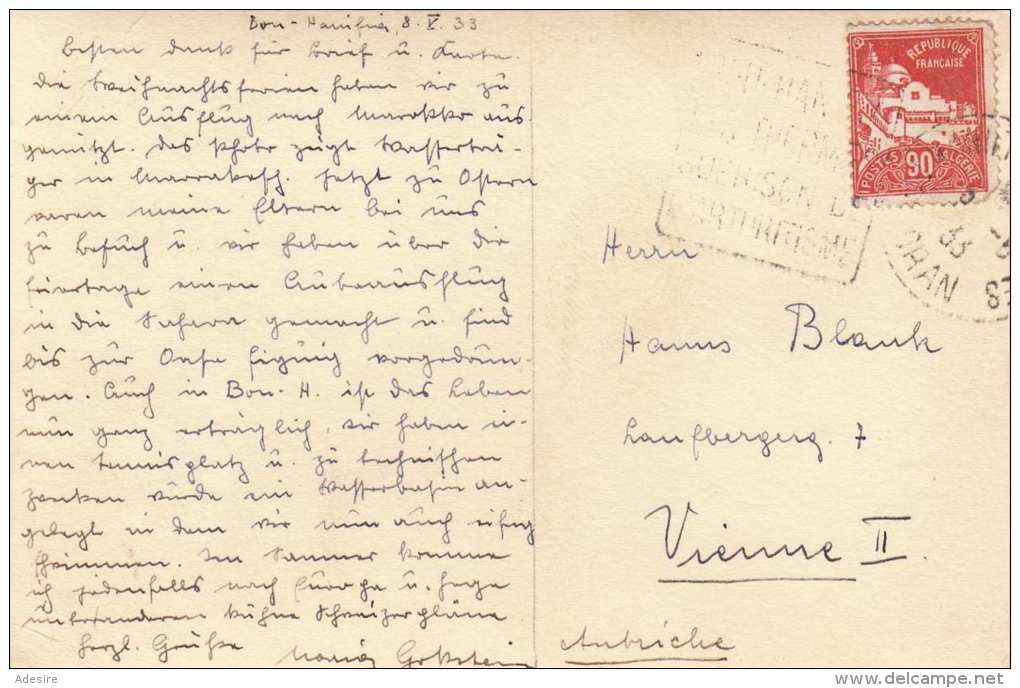 Bou-Hanifia, 8. V. 33
Besten Dank für Brief u. Karte.
die Weihnachtsferien haben wir zu
einem Ausflug nach Marokko aus-
genützt. das Photo zeigt Wasserträ-
ger in Marrakesch. Jetzt zu Ostern
waren meine Eltern bei uns
zu Besuch u. wir haben über die
Feiertage einen Autoausflug
in die Sahara gemacht u. sind
bis zur Oase Figuig vorgedrun-
gen. Auch in Bou-H. ist das Leben
nun ganz erträglich, wir haben ei-
nen Tennisplatz u. zu technischen
Zwecken würde ein Wasserbassin an-
gelegt in dem wir nun auch eifrig
schwimmen. Im Sommer komme
ich jedenfalls nach Europa u. hege
unteranderem kühne Schweizerpläne
herzl. Grüße
REPUBLIQUE
FRANÇAISE
POSTES 90 ALGERIE
ARTHRITISME
ORAN
33
Herrn
Hanns Blank
Laufbergerg. 7
Vienne II.
Autriche
Adesire
www.delcampe.net